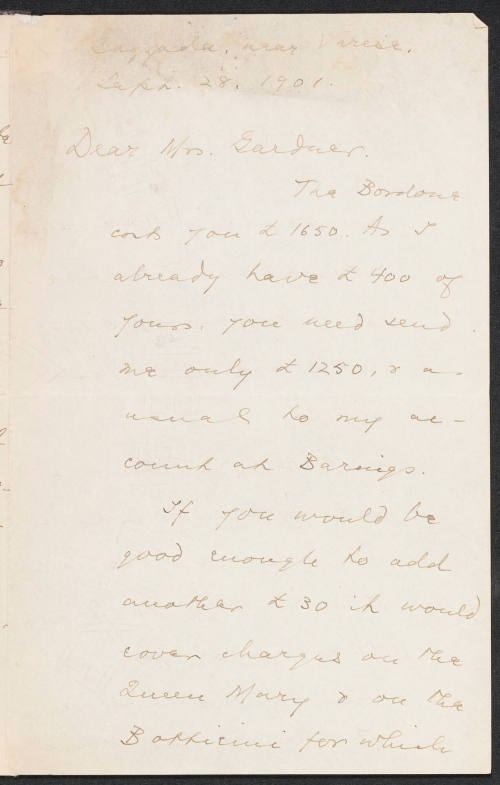 Gazzada, near Varese.
Sept. 28. 1901.
Dear Mrs. Gardner.
The Bordone
costs you £ 1650. As I
already have £ 400 of
yours. you need send
me only £ 1250, & as
usual to my ac-
count at Barings.
If you would be
good enough to add
another £ 30 it would
cover charges on the
Queen Mary & on the
Botticini for which